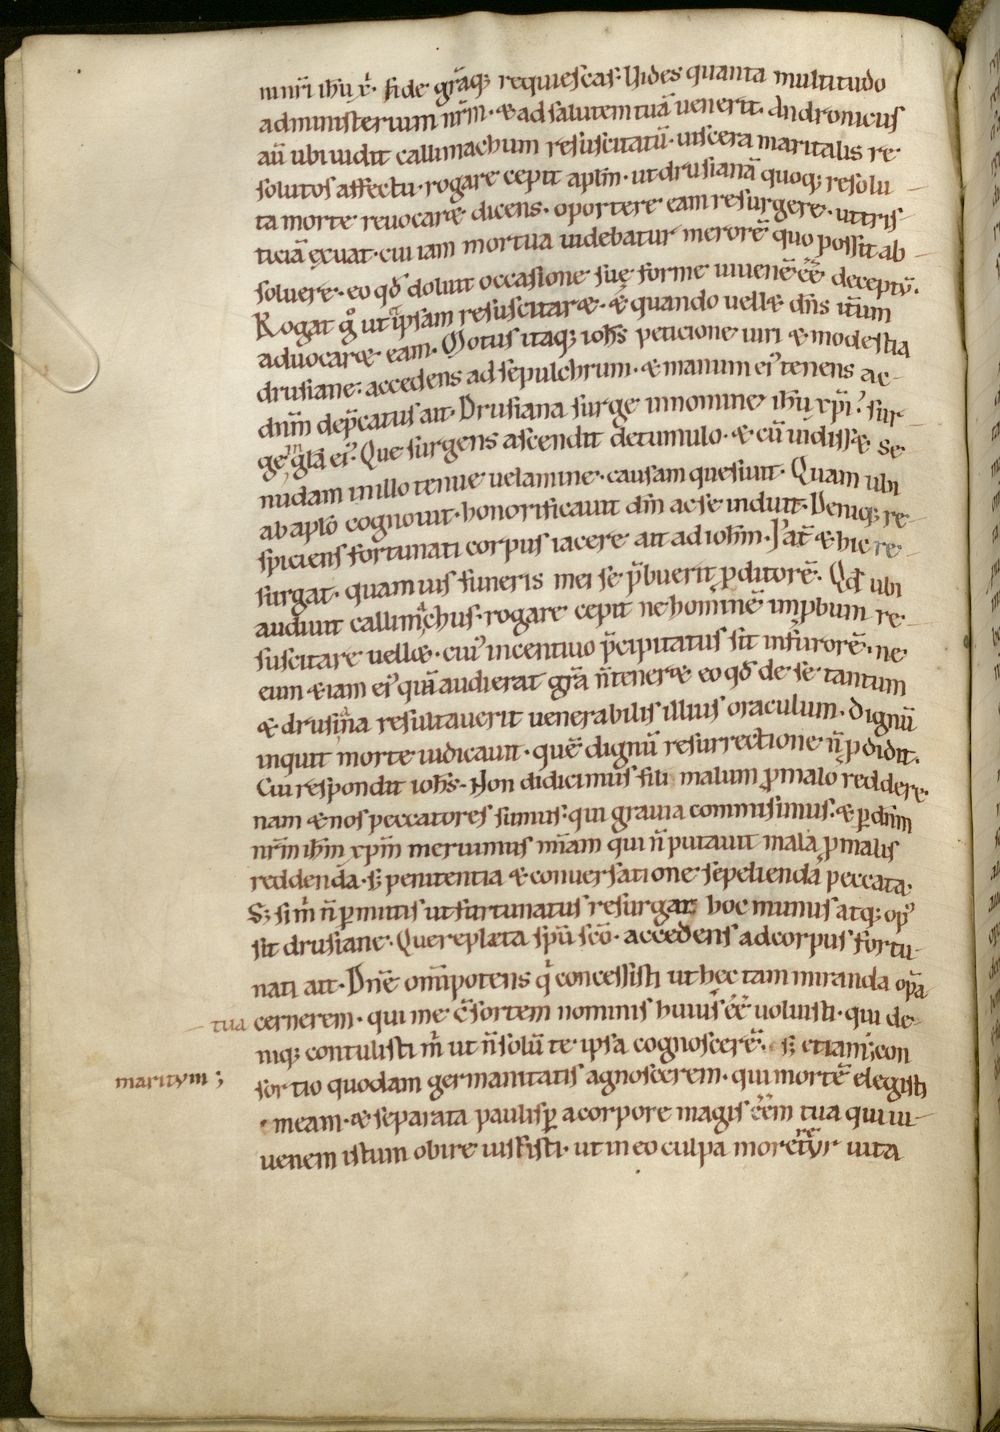 in nr̄i ih̄u x̄. fide gr̄aq; requiescas. Vides quanta multitudo
ad ministerium nr̄m. & ad salutem tuā uenerit. Andronicus
aū ubi uidit callimachum resuscitatū. uiscera maritalis re
solutos affectu. rogare cepit apl̄m. ut drusianā quoq; resolu
ta morte reuocaret dicens. oportere eam resurgere. ut tris
ticiā exuat. cui iam mortua uidebatur merorē quo possit ab
soluere. eo qđ doluit occasione suę forme iuuenē ēē deceptū.
Rogat gͦ ut ipsam resuscitaret. & quando uellet dn̄s itūm
aduocaret eam. Motus itaq; ioh̄s peticione uiri & modestia
drusiane. accedens ad sepulchrum. & manum ei' tenens ac
dn̄m dep̄catus ait. Drusiana surge in nomine ih̄u xp̄i. sur
ge in gl̄a ei'. Que surgens ascendit de tumulo. & cū uidisset se
nudam in illo tenue uelamine. causam quesiuit. Quam ubi
ab apl̄o cognouit. honorificauit dn̄m ac se induit. Deniq; re
spiciens fortunati corpus iacere ait ad ioh̄m. Pat̄ & hic re
surgat. quamuis funeris mei se p̄buerit p̱ditorē. Qđ ubi
audiuit callimachus. rogare cepit ne hominē imp̱bum re
suscitare uellet. cui' incentiuo p̄cipitatus sit in furorē. ne
eum etiam ei' quā audierat gr̄a n̄ teneret eo qđ de se tantum
& drusiana resultauerit uenerabilis illius oraculum. Dignū
inquit morte iudicauit. quē dignū resurrectione n̄ p̱didit.
Cui respondit ioh̄s. Non didicimus fili malum p̱ malo reddere.
nam & nos peccatores sumus. qui grauia commisimus. & p̱ dn̄m
nr̄m ih̄m xp̄m meruimus mīam qui n̄ putauit mala p̱ malis
reddenda. s; penitentia & conuersatione sepelienda peccata.
S; si m̄ n̄ p̱mittis ut furtunatus resurgat; hoc munus atq; op'
sit drusiane. Que repleta sp̄u sc̄o. accedens ad corpus fortu
nati ait. Dn̄e om̄ipotens q' concessisti ut hec tam miranda op̄a
tua cernerem. qui me c̄sortem nominis huius ēē uoluisti. qui de
niq; contulisti m̄ ut n̄ solū te ipsa cognoscerē. s; etiam; con
maritum;
sortio quodam germanitatis agnoscerem. qui mortē elegisti
meam. & separata paulisp̱ a corpore magis ēēm tua qui iu
uenem istum obire iussisti. ut in eo culpa moreretur uita